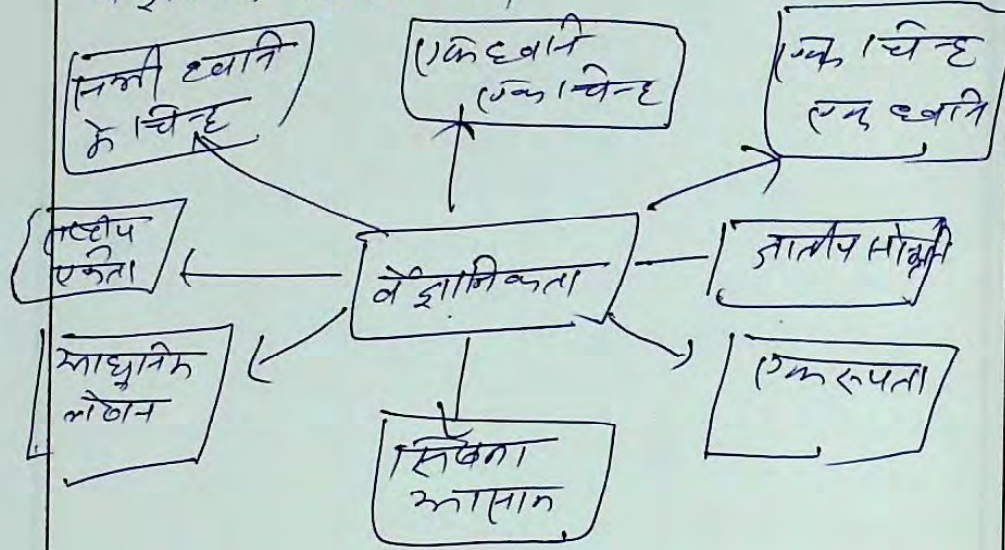 सभी ध्वनि
के चिन्ह
एक ध्वनि
एक चिन्ह
एक चिन्ह
एक ध्वनि
राष्ट्रीय
एकता
वैज्ञानिकता
जातीय
आधुनिक
लेखन
एकरूपता
सिखना
आसान